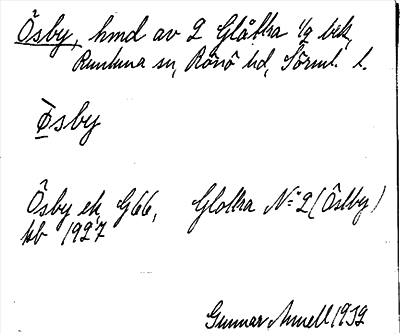 Ösby, hmd av 2 Glåttra 1/2 bek,
Runtuna sn, Rönö hd, Sörml. l.
Ösby
Ösby ek, G66, Glottra No 2 (Östby)
kb 1927
Gunnar Arnell 1939